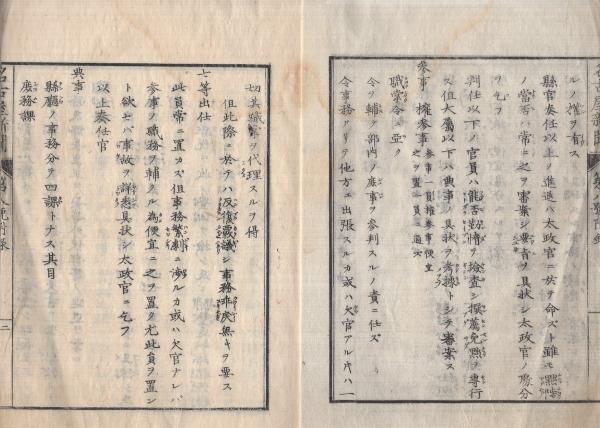 ルノ権ヲ有ス
縣官奏任以上ノ進退ハ太政官ニ於テ命スト雖モ
ノ當否ハ常ニ之ヲ審案シ要者ヲ具状シ太政官ノ處分
ヲ乞フ
判任以下ノ官員ハ能否勤惰ヲ検査シ撰薦免黜ヲ專行
ス但大属以下ハ典事ノ具状ヲ考據トシテ審案ス
参事 権参事 参事一員権参事便宜之ヲ置一員ニ通ス
職掌令ニ亞ク
令ヲ輔ケ部内ノ庶事ヲ参判スルノ責ニ任ス
令事務アリテ他方ニ出張スルカ或ハ欠官アル片ハ一
切其職掌ヲ代理スルヲ得
但此際ニ於テハ反復議シ事務非戻無キヲ要ス
七等出仕
此員常ニ置カス但事務繁劇ニ渉ルカ或ハ欠官ナレバ
参事ノ職務ヲ輔ノル為便宜ニ之ヲ置ク尤此員ヲ置ン
ト欲セバ事故ヲ詳悉具状シ太政官ニ乞フ
以上奏任官
典事
縣廳ノ事務分テ四課トナス其目
庶務課
名古屋新聞
二